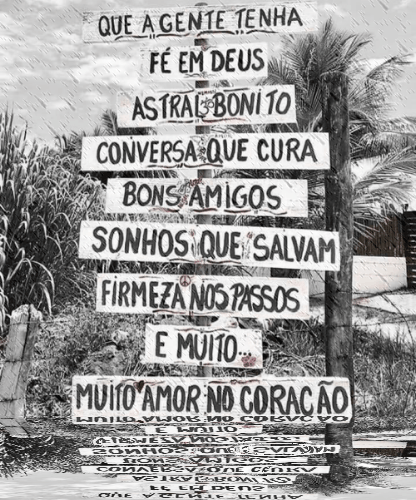 QUE A GENTE TENHA
FÉ EM DEUS
ASTRAL BONITO
CONVERSA QUE CURA
BONS AMIGOS
SONHOS QUE SALVAM
FIRMEZA NOS PASSOS
E MUITO...
MUITO AMOR NO CORAÇÃO